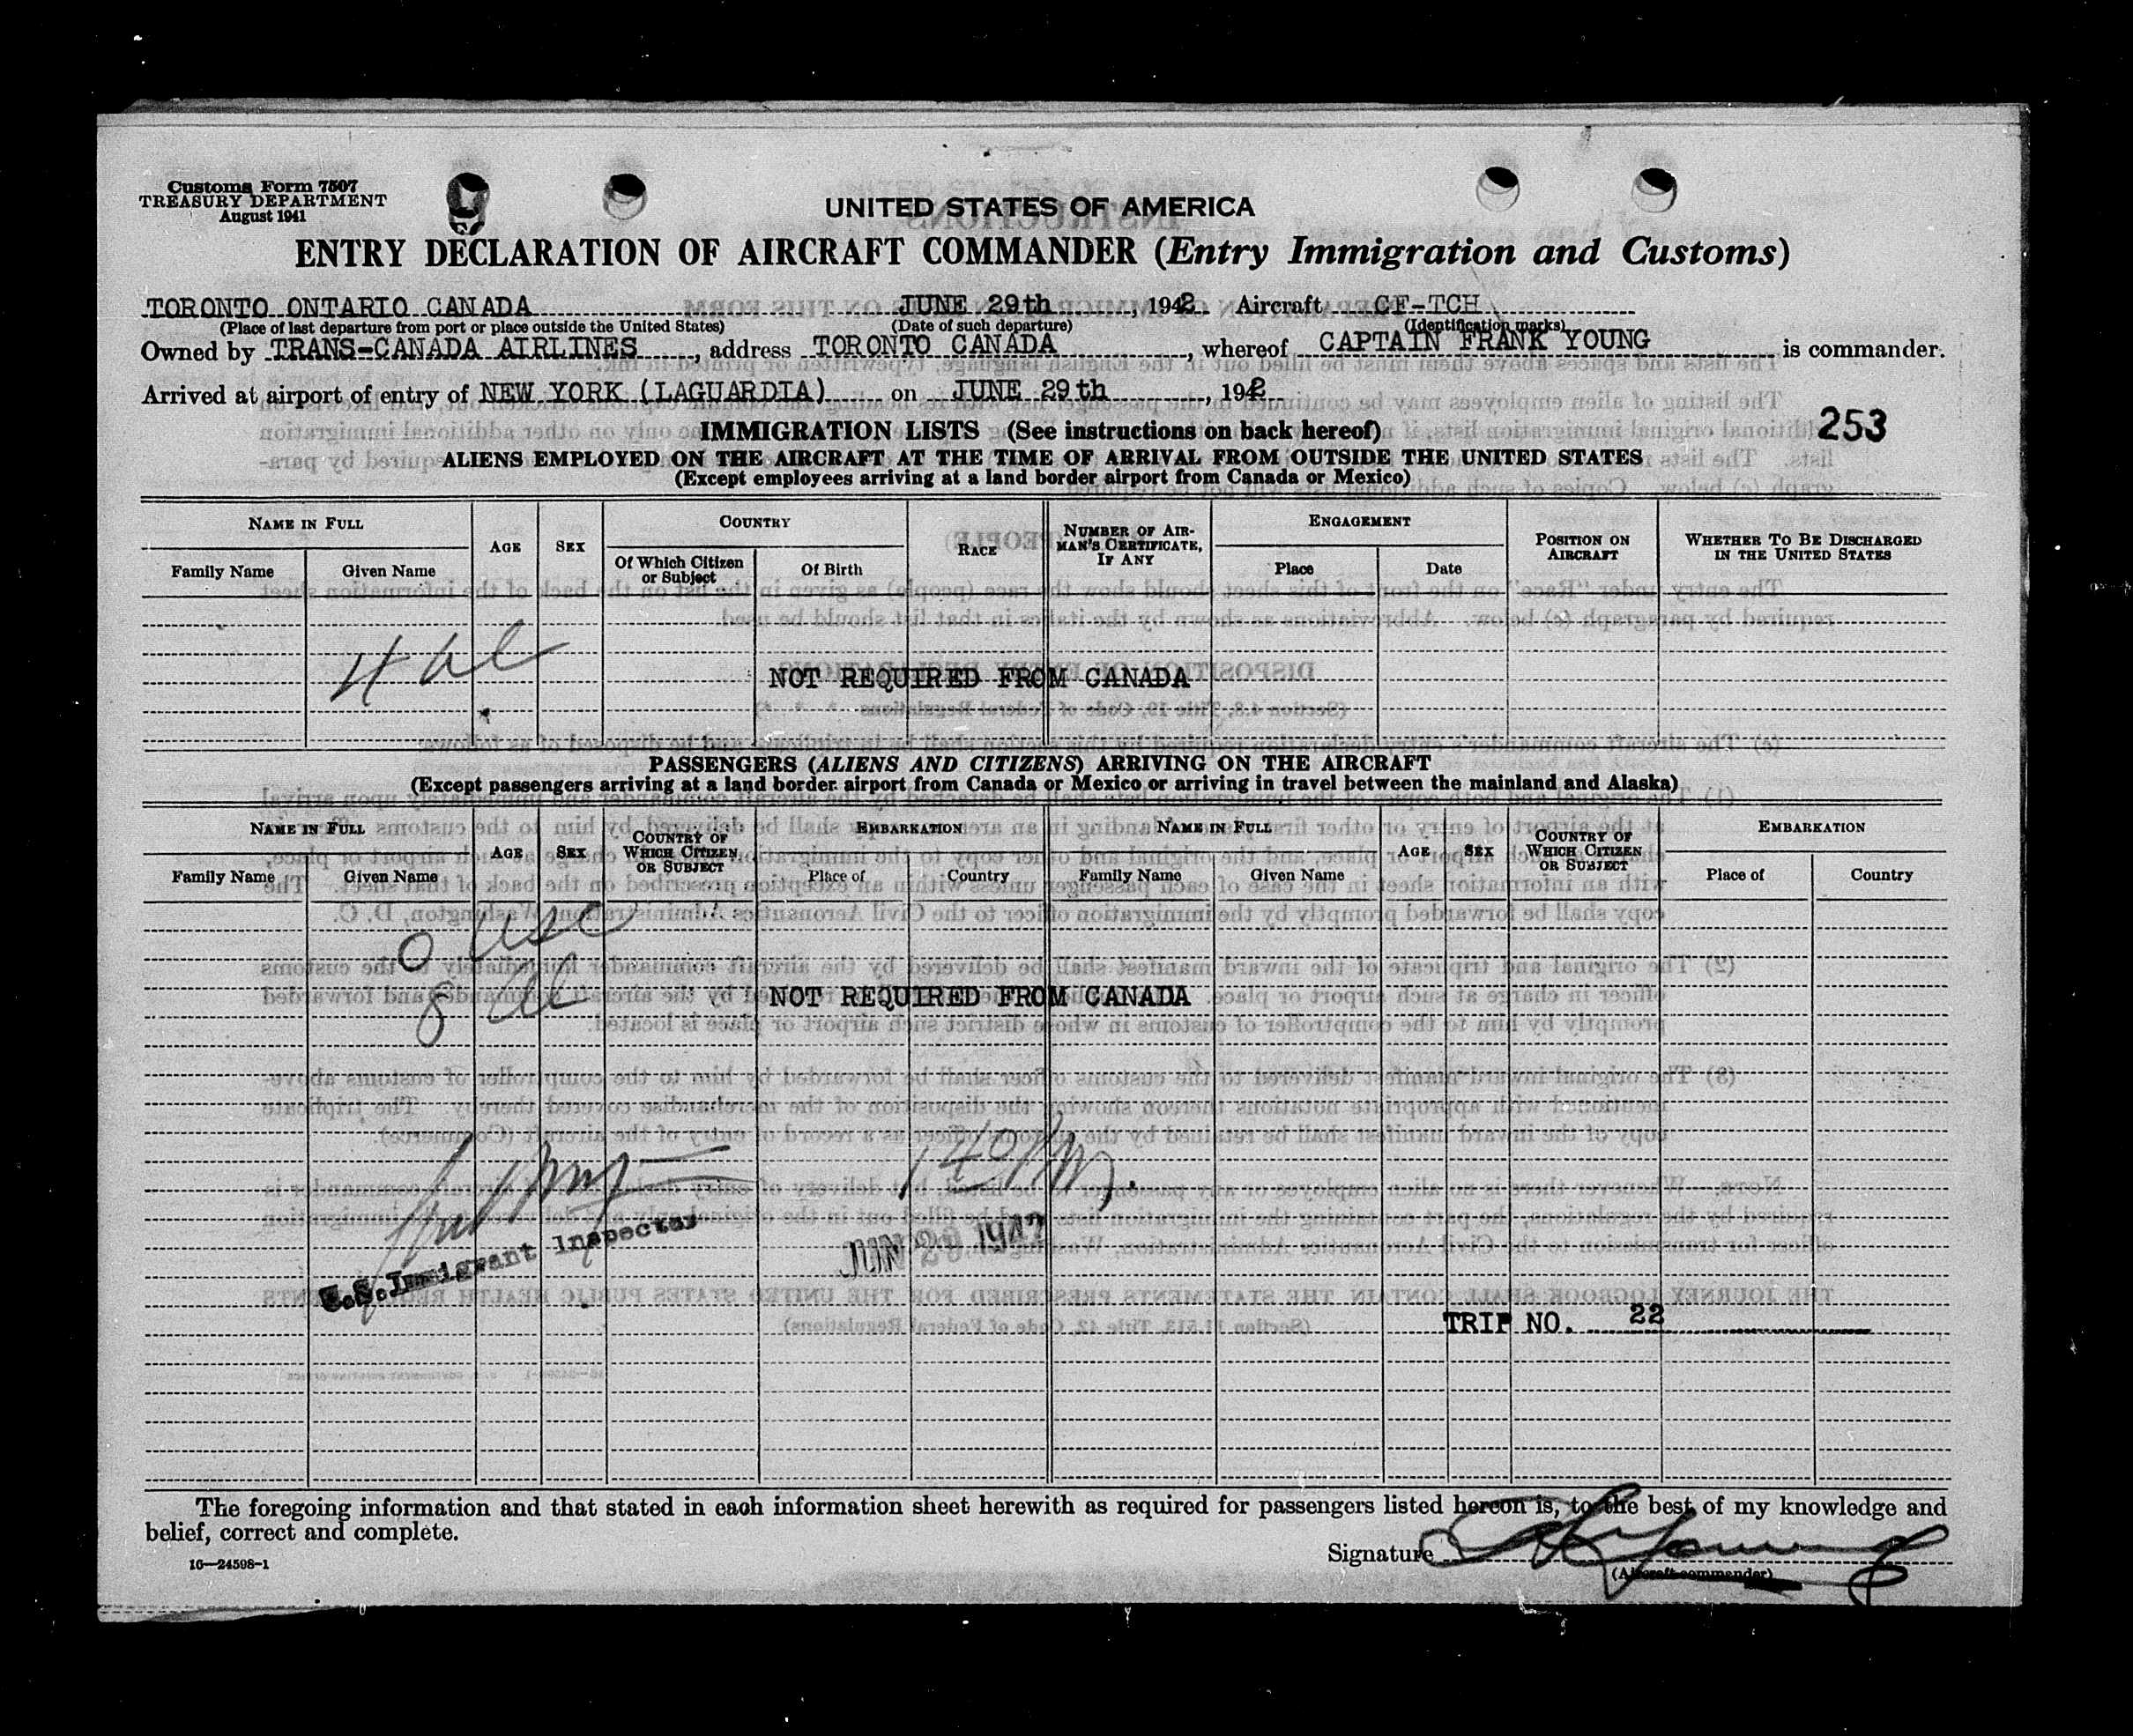 Customs Form 7507
TREASURY DEPARTMENT
August 1941
UNITED STATES OF AMERICA
ENTRY DECLARATION OF AIRCRAFT COMMANDER (Entry Immigration and Customs)
TORONTO ONTARIO CANADA JUNE 29th, 1942 Aircraft CF-TCH
(Place of last departure from port or place outside the United States) (Date of such departure) (Identification marks)
Owned by TRANS-CANADA AIRLINES, address TORONTO CANADA, whereof CAPTAIN FRANK YOUNG is commander.
Arrived at airport of entry of NEW YORK (LAGUARDIA) on JUNE 29th, 1942
253
IMMIGRATION LISTS (See instructions on back hereof)
ALIENS EMPLOYED ON THE AIRCRAFT AT THE TIME OF ARRIVAL FROM OUTSIDE THE UNITED STATES
(Except employees arriving at a land border airport from Canada or Mexico)
NAME IN FULL AGE SEX COUNTRY RACE NUMBER OF AIRMAN'S CERTIFICATE, IF ANY ENGAGEMENT POSITION ON AIRCRAFT WHETHER TO BE DISCHARGED IN THE UNITED STATES
Family Name Given Name Of Which Citizen or Subject Of Birth Place Date
4
NOT REQUIRED FROM CANADA
PASSENGERS (ALIENS AND CITIZENS) ARRIVING ON THE AIRCRAFT
(Except passengers arriving at a land border airport from Canada or Mexico or arriving in travel between the mainland and Alaska)
NAME IN FULL AGE SEX COUNTRY OF WHICH CITIZEN OR SUBJECT EMBARKATION NAME IN FULL AGE SEX COUNTRY OF WHICH CITIZEN OR SUBJECT EMBARKATION
Family Name Given Name Place of Country Family Name Given Name Place of Country
0 USC
8 al
NOT REQUIRED FROM CANADA
140 PM.
U.S. Immigrant Inspector
JUN 29 1942
TRIP NO. 22
The foregoing information and that stated in each information sheet herewith as required for passengers listed hereon is, to the best of my knowledge and
belief, correct and complete.
Signature
(Aircraft commander)
16—24598-1